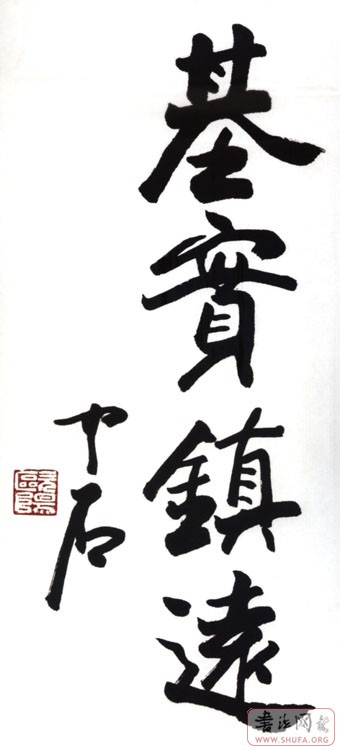 基實鎮遠
中石
书法网报
WWW.SHUFA.ORG